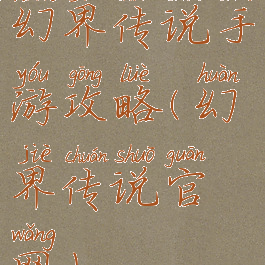 幻界传说手
yóu gōng lüè huàn
游攻略(幻
jiè chuán shuō guān
界传说官
wǎng
网)